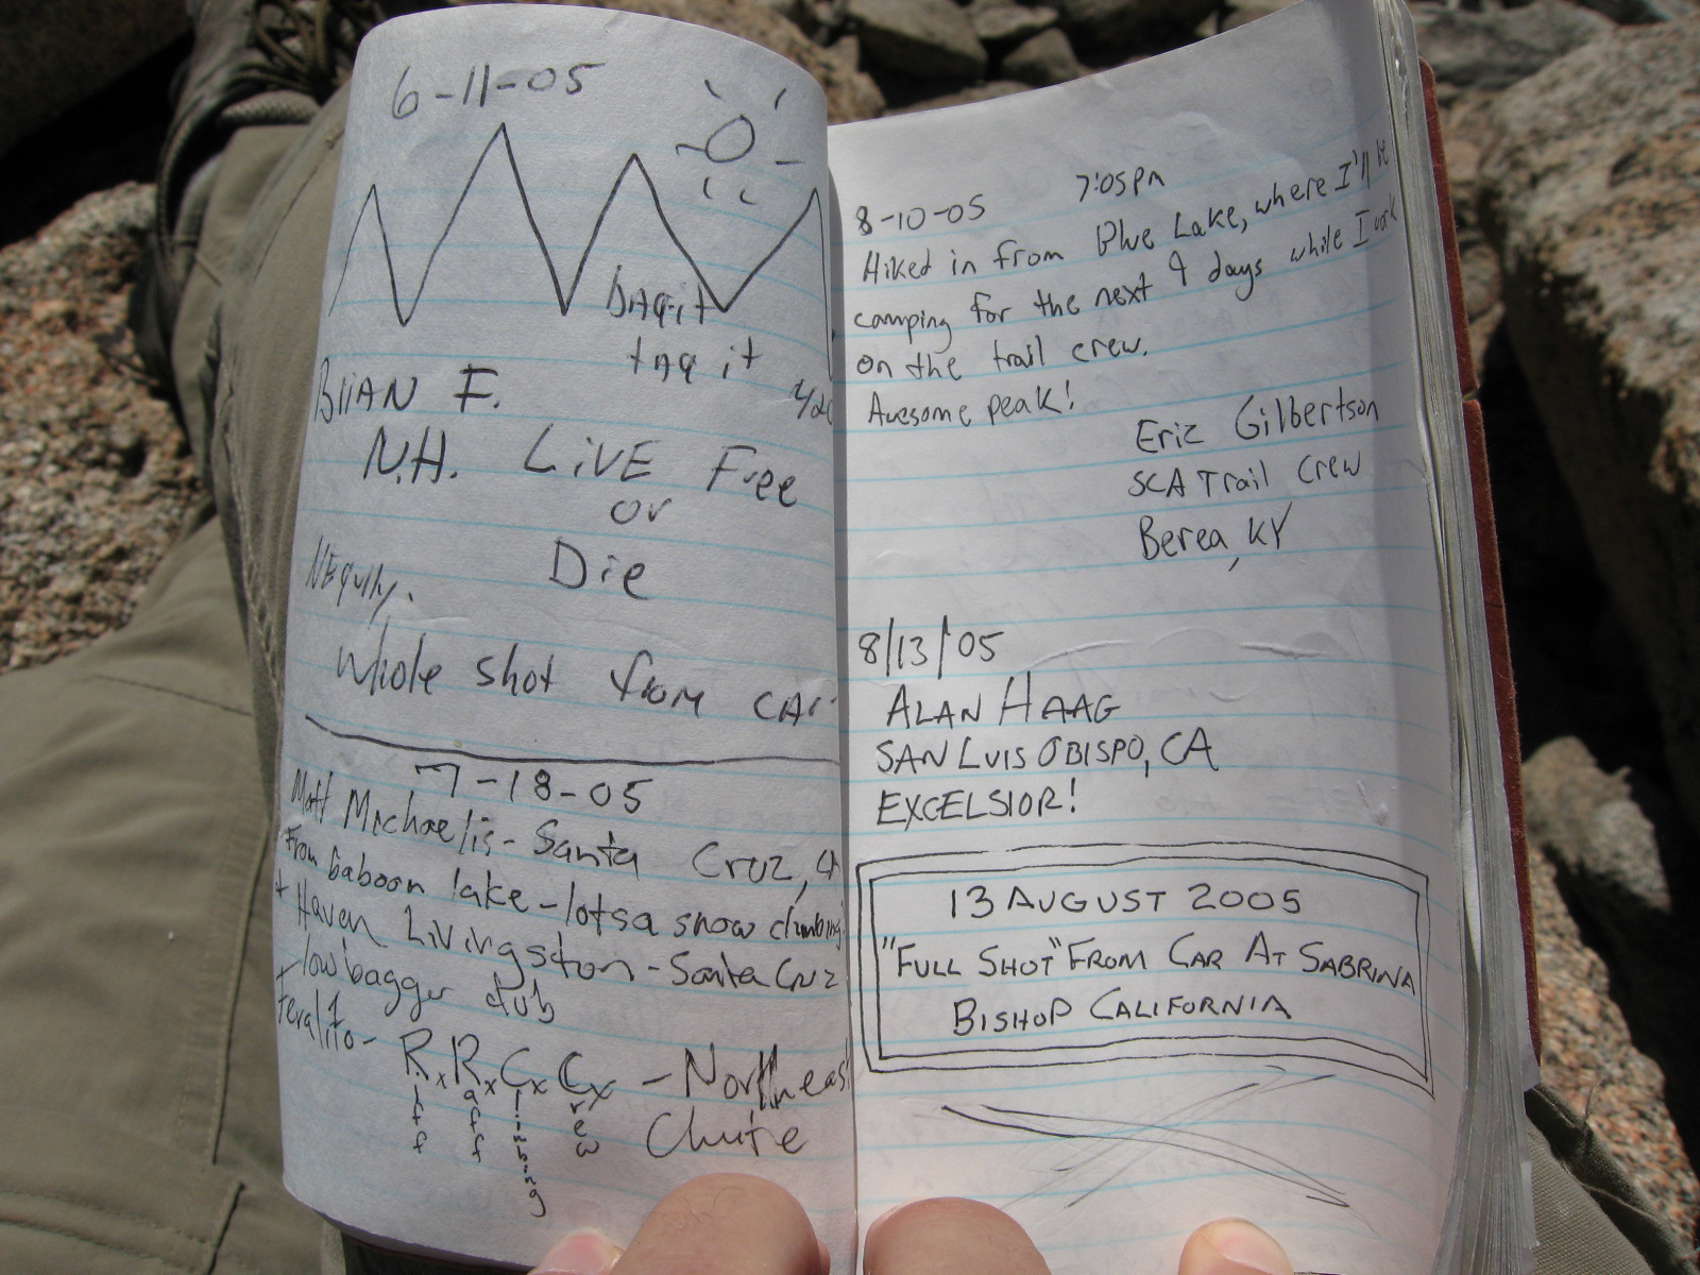 6-11-05
bag it
tag it
BriAN F.
N.H. LiVE Free
or
Die
whole shot from CAr
7-18-05
Matt Michaelis - Santa Cruz, CA
From baboon lake - lotsa snow climbing
+ Haven Livingston - Santa Cruz
lowbagger club
R.x R.x Cx Cx - Northeast
Chute
8-10-05 7:05pm
Hiked in from Blue Lake, where I'll be
camping for the next 9 days while I work
on the trail crew.
Awesome peak!
Eric Gilbertson
SCA Trail Crew
Berea, KY
8/13/05
ALAN HAAG
SAN LUIS OBISPO, CA
EXCELSIOR!
13 AUGUST 2005
"FULL SHOT" FROM CAR AT SABRINA
BISHOP CALIFORNIA